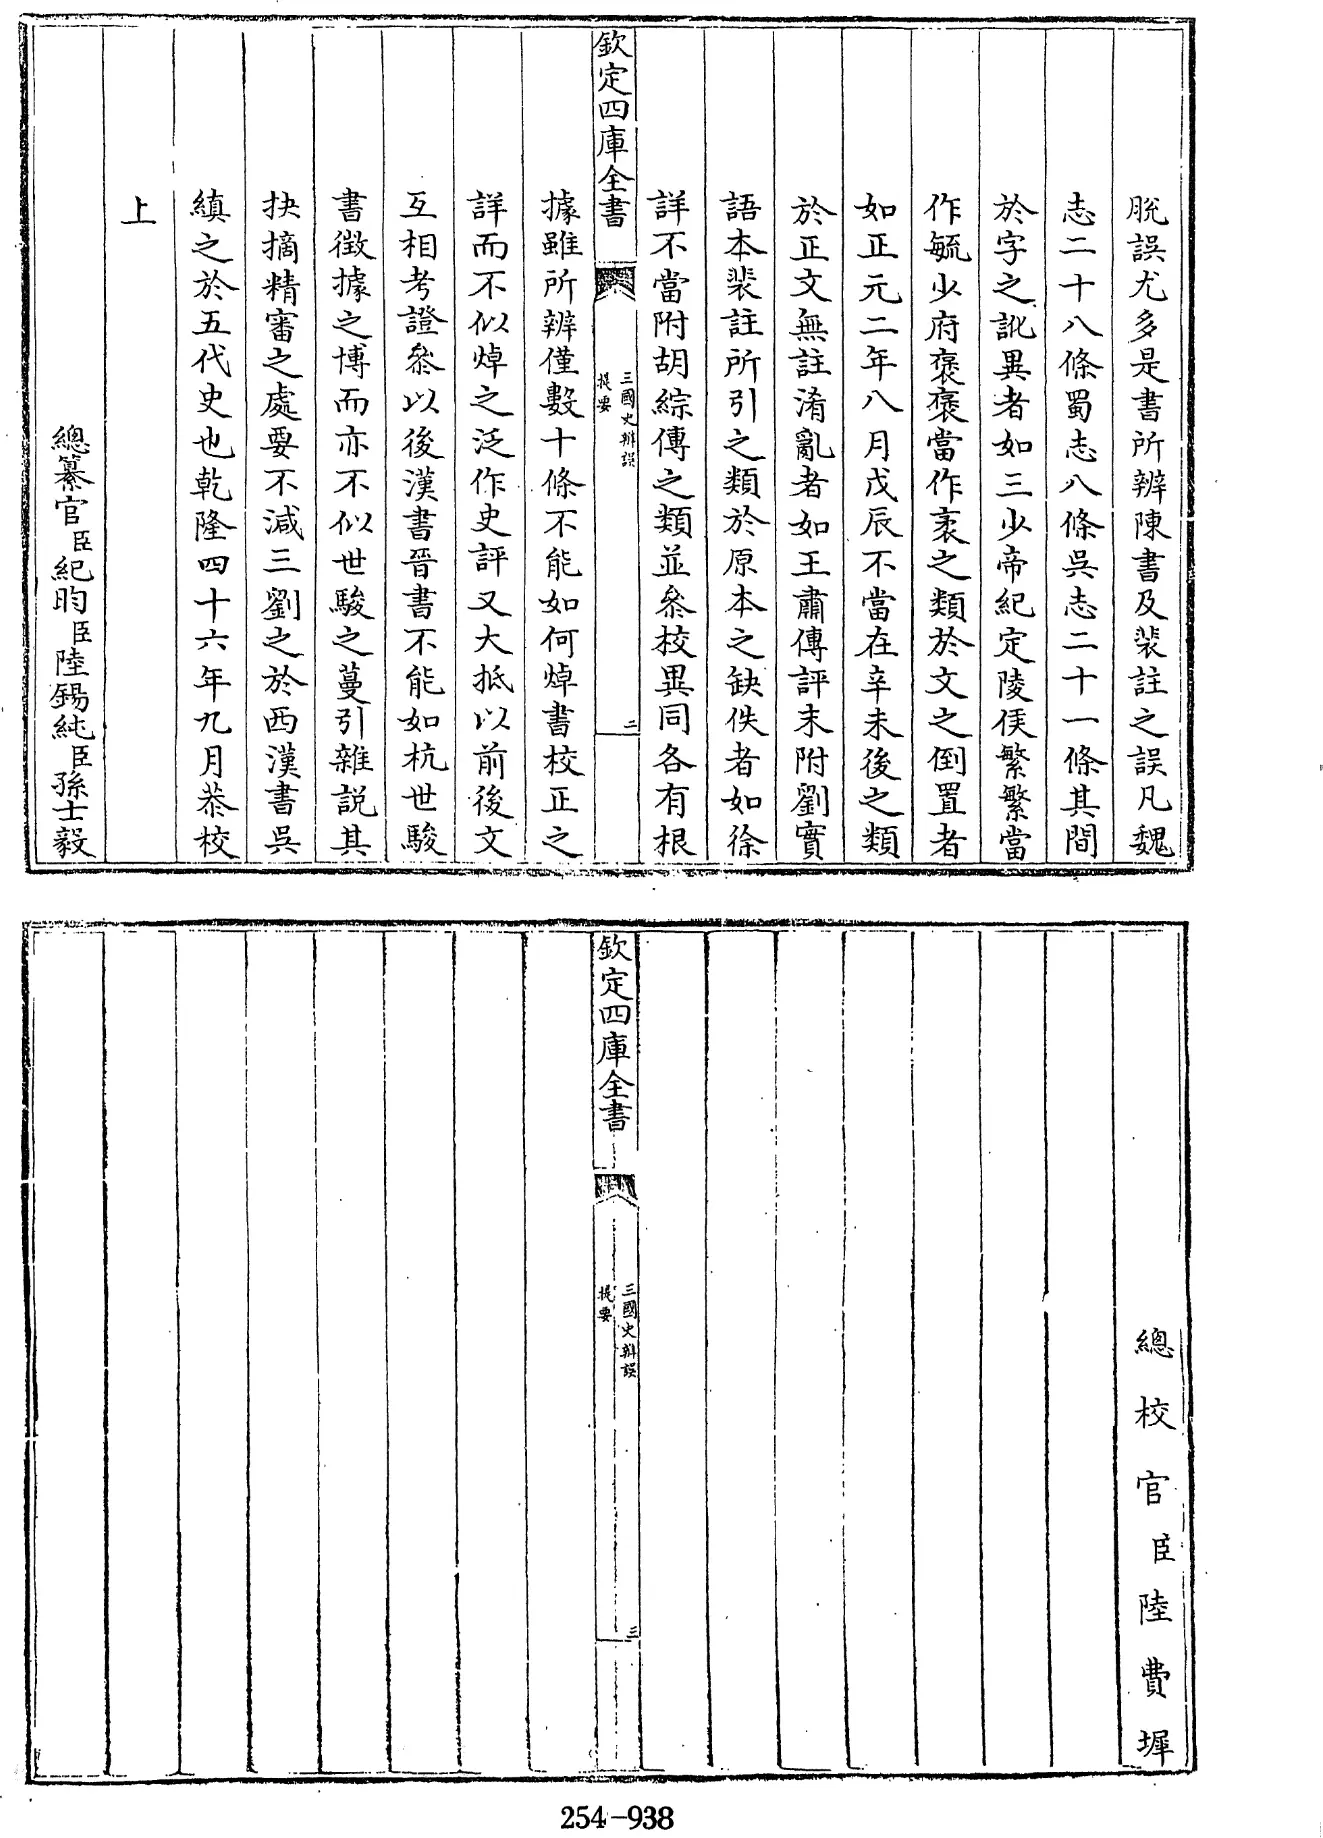 脱誤尤多是書所辨陳書及裴註之誤凡魏
志二十八條蜀志八條吳志二十一條其間
於字之訛異者如三少帝紀定陵侯繁繁當
作毓少府褒褒當作袤之類於文之倒置者
如正元二年八月戊辰不當在辛未後之類
於正文無註淆亂者如王肅傳評末附劉寔
語本裴註所引之類於原本之缺佚者如徐
詳不當附胡綜傳之類並叅校異同各有根
欽定四庫全書
三國史辨誤
提要
二
據雖所辨僅數十條不能如何焯書校正之
詳而不似焯之泛作史評又大抵以前後文
互相考證叅以後漢書晉書不能如杭世駿
書徴據之博而亦不似世駿之蔓引雜説其
抉摘精審之處要不減三劉之於西漢書吳
縝之於五代史也乾隆四十六年九月恭校
上
總纂官臣紀昀臣陸錫純臣孫士毅
總校官臣陸費墀
欽定四庫全書
三國史辨誤
提要
三
254-938